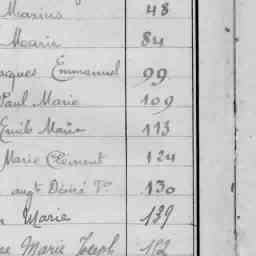 Marius 48
Marie 84
aques Emmanuel 99
Paul Marie 109
Emile Marie 113
Marie Clément 124
augt Désiré 130
Marie 139
Marie Joseph 152